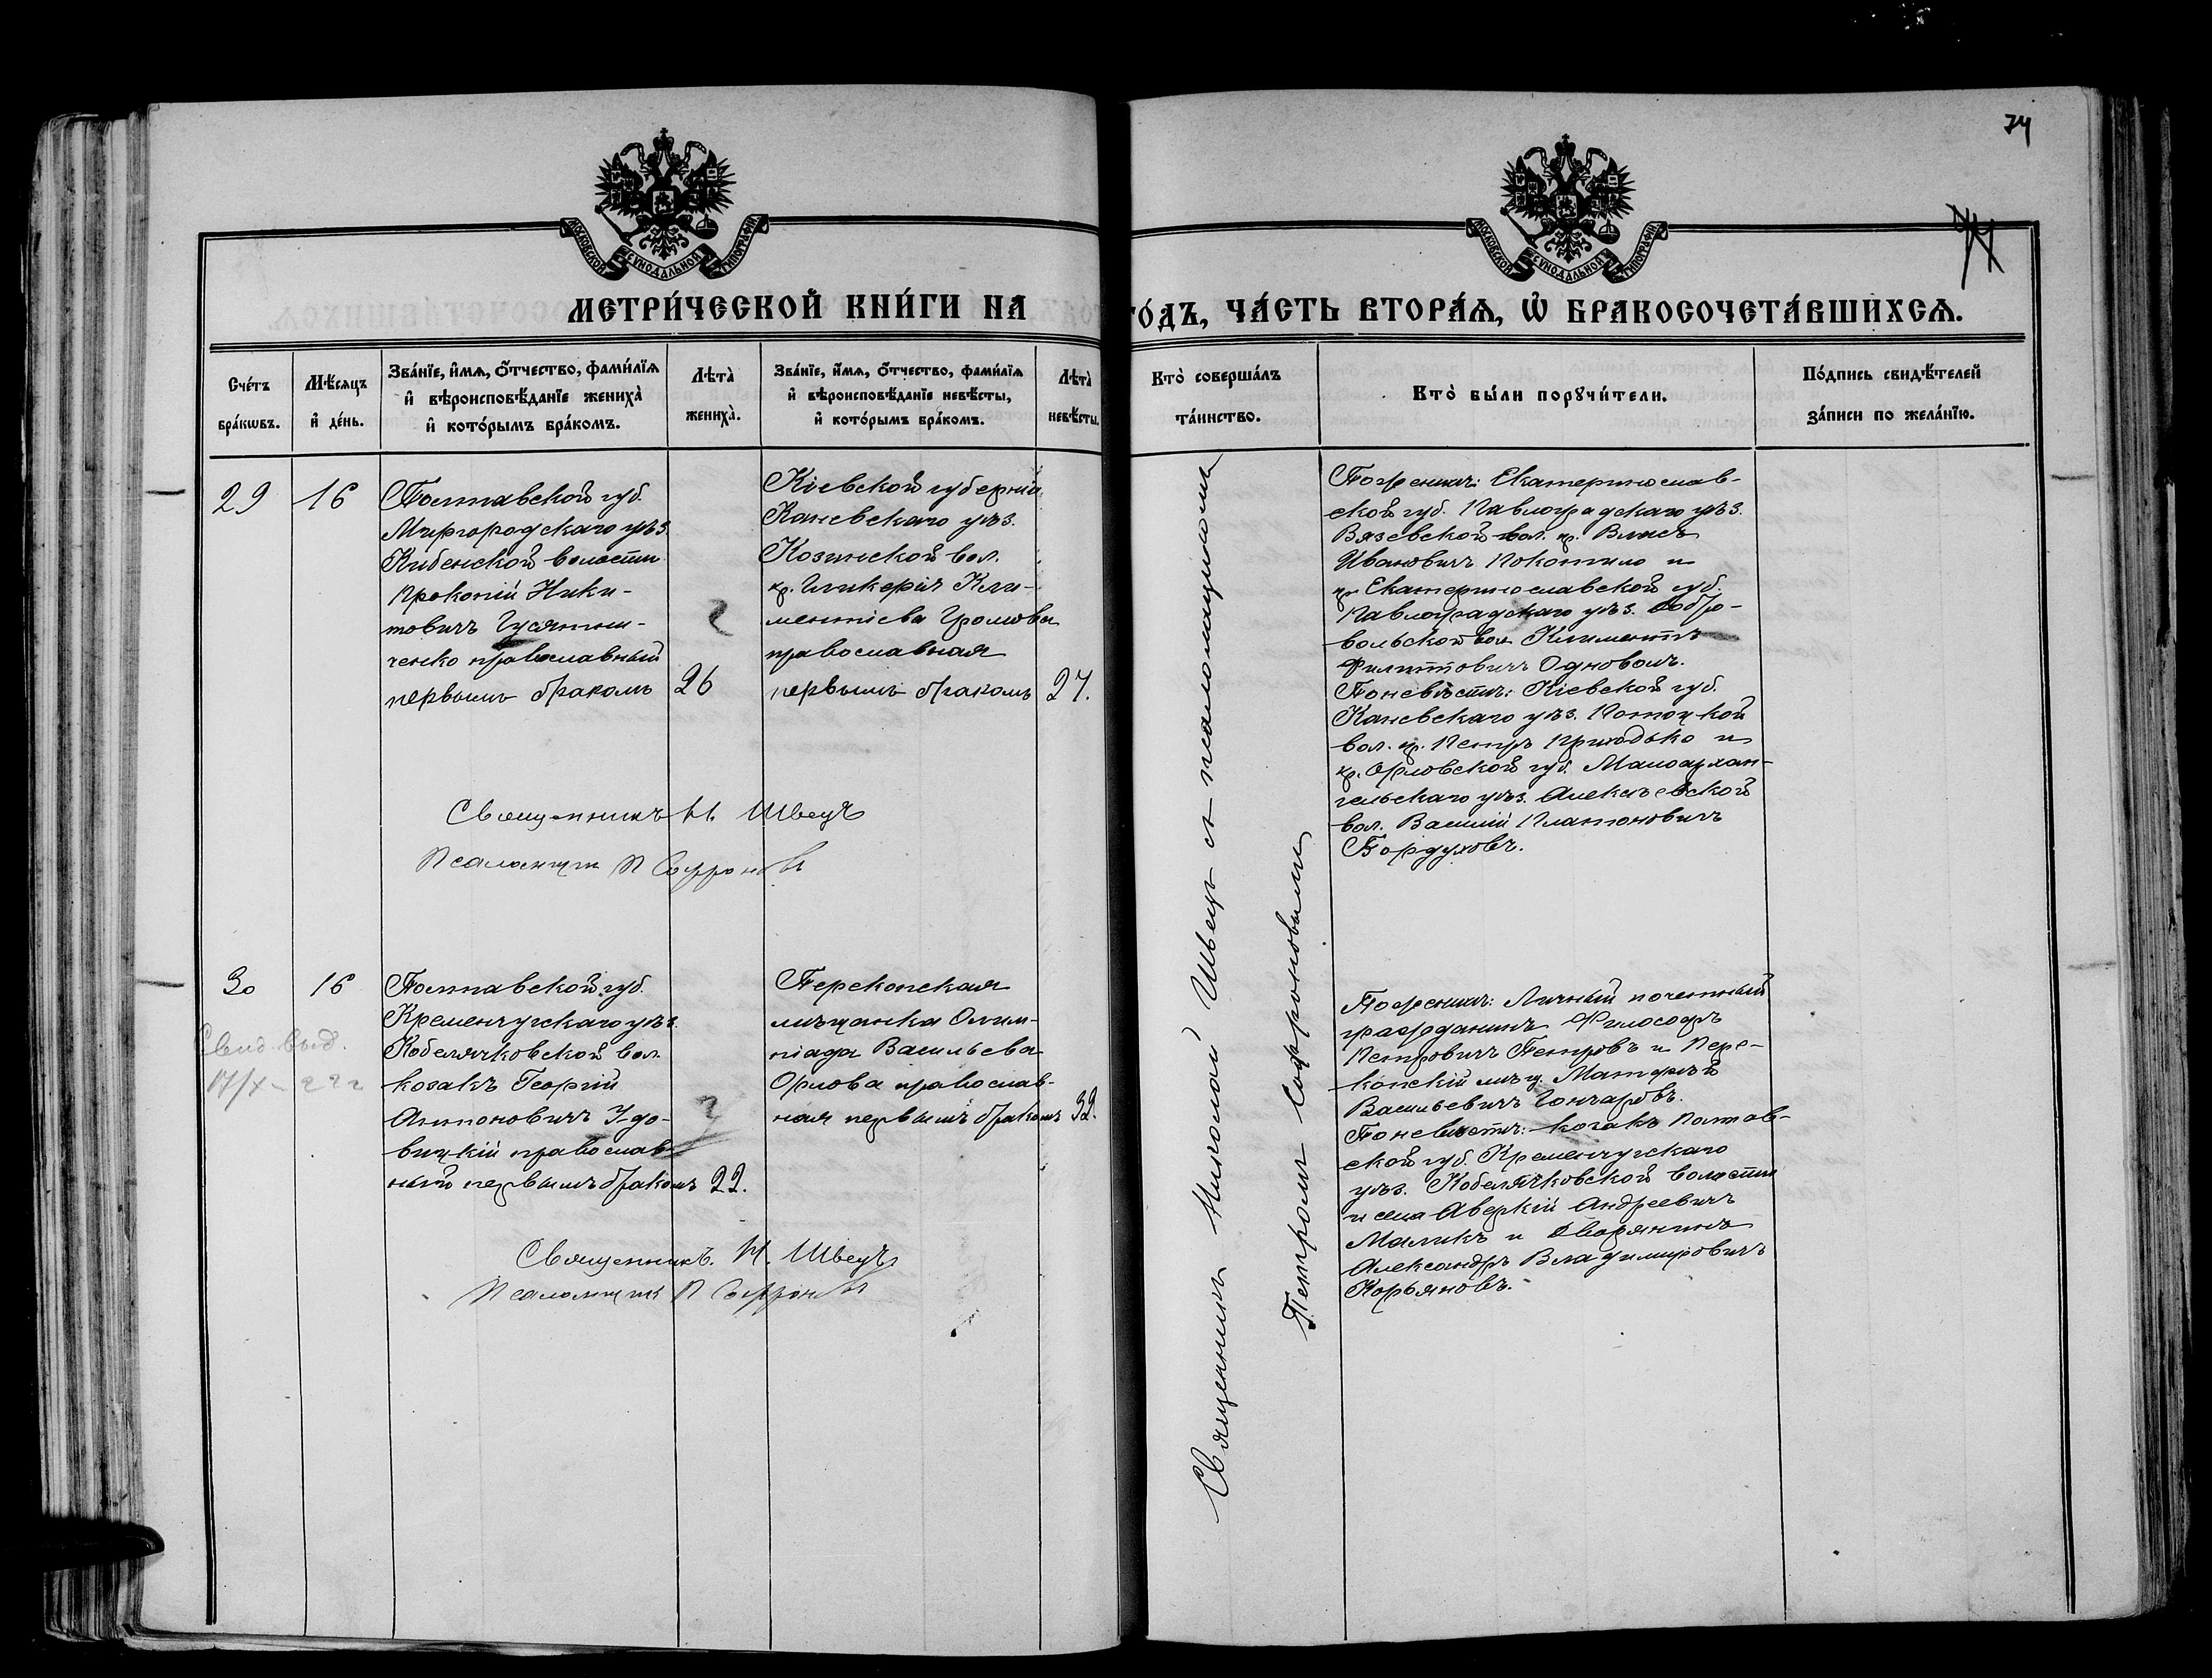 74
74
МОСКОВСКОЙ СУНОДАЛЬНОЙ ТИПОГРАФІИ
МОСКОВСКОЙ СУНОДАЛЬНОЙ ТИПОГРАФІИ
МЕТРИ́ЧЕСКОЙ КНИ́ГИ НА
ГО́ДЪ, ЧА́СТЬ ВТОРА́Ѧ, Ѽ БРАКОСОЧЕТА́ВШИХСѦ.
Сче́тъ бра́кѡвъ.
Мѣ́сяцъ и҆ де́нь.
Зва́нїе, и҆́мѧ, ѻ҆́тчество, фами́лїѧ
и҆ вѣроисповѣ́данїе жениха̀
и҆ кото́рымъ бра́комъ.
Лѣта̀ жениха̀.
Зва́нїе, и҆́мѧ, ѻ҆́тчество, фами́лїѧ
и҆ вѣроисповѣ́данїе невѣ́сты,
и҆ кото́рымъ бра́комъ.
Лѣта̀ невѣ́сты.
Кто̀ соверша́лъ
та́инство.
Кто̀ бы́ли порꙋчи́тели.
По́дпись свидѣ́телей
за́писи по жела́нїю.
29
16
Полтавской губ.
Миргородскаго уѣз.
Кибенской волости
Прокопій Ники-
товичъ Гусятни-
ченко православный
первымъ бракомъ
26
Кіевской губерніи
Каневскаго уѣз.
Козинской вол.
кр. Гликерія Кли-
ментіева Громова
православная
первымъ бракомъ
27.
Священникъ Н. Швецъ
Псаломщик П Софроновъ
Священникъ Николай Швецъ съ псаломщикомъ
Петромъ Софроновымъ
По женихѣ: Екатеринослав-
ской губ. Павлоградскаго уѣз.
Вязевской вол. кр. Власъ
Ивановичъ Покотило и
кр. Екатеринославской губ.
Павлоградскаго уѣз. Добро-
вольской вол Климентъ
Филиповичъ Одноволъ.
По невѣстѣ: Кіевской губ.
Каневскаго уѣз. Потоцкой
вол. кр. Петръ Приходько и
кр. Орловской губ. Малоархан-
гельскаго уѣз. Алексѣевской
вол. Василій Платоновичъ
Бордуховъ.
30
16
Свид. выд.
17/X - 22 г
Полтавской губ.
Кременчугскаго уѣз.
Кобелячковской вол.
козакъ Георгій
Антоновичъ Удо-
вицкій православ-
ный первымъ бракомъ
22.
Перекопская
мѣщанка Олим-
піада Васильева
Орлова православ-
ная первымъ бракомъ
32.
Священникъ. Н. Швецъ
Псаломщик П Софроновъ
По женихѣ: Личный почетный
гражданинъ Философъ
Петровичъ Петровъ и Пере-
копскій мѣщ. Матфѣй
Васильевичъ Гончаровъ.
По невѣстѣ: козакъ Полтав-
ской губ. Кременчугскаго
уѣз. Кобелячковской волости
и села Аверкій Андреевичъ
Маликъ и Дворянинъ
Александръ Владимировичъ
Корьяновъ.